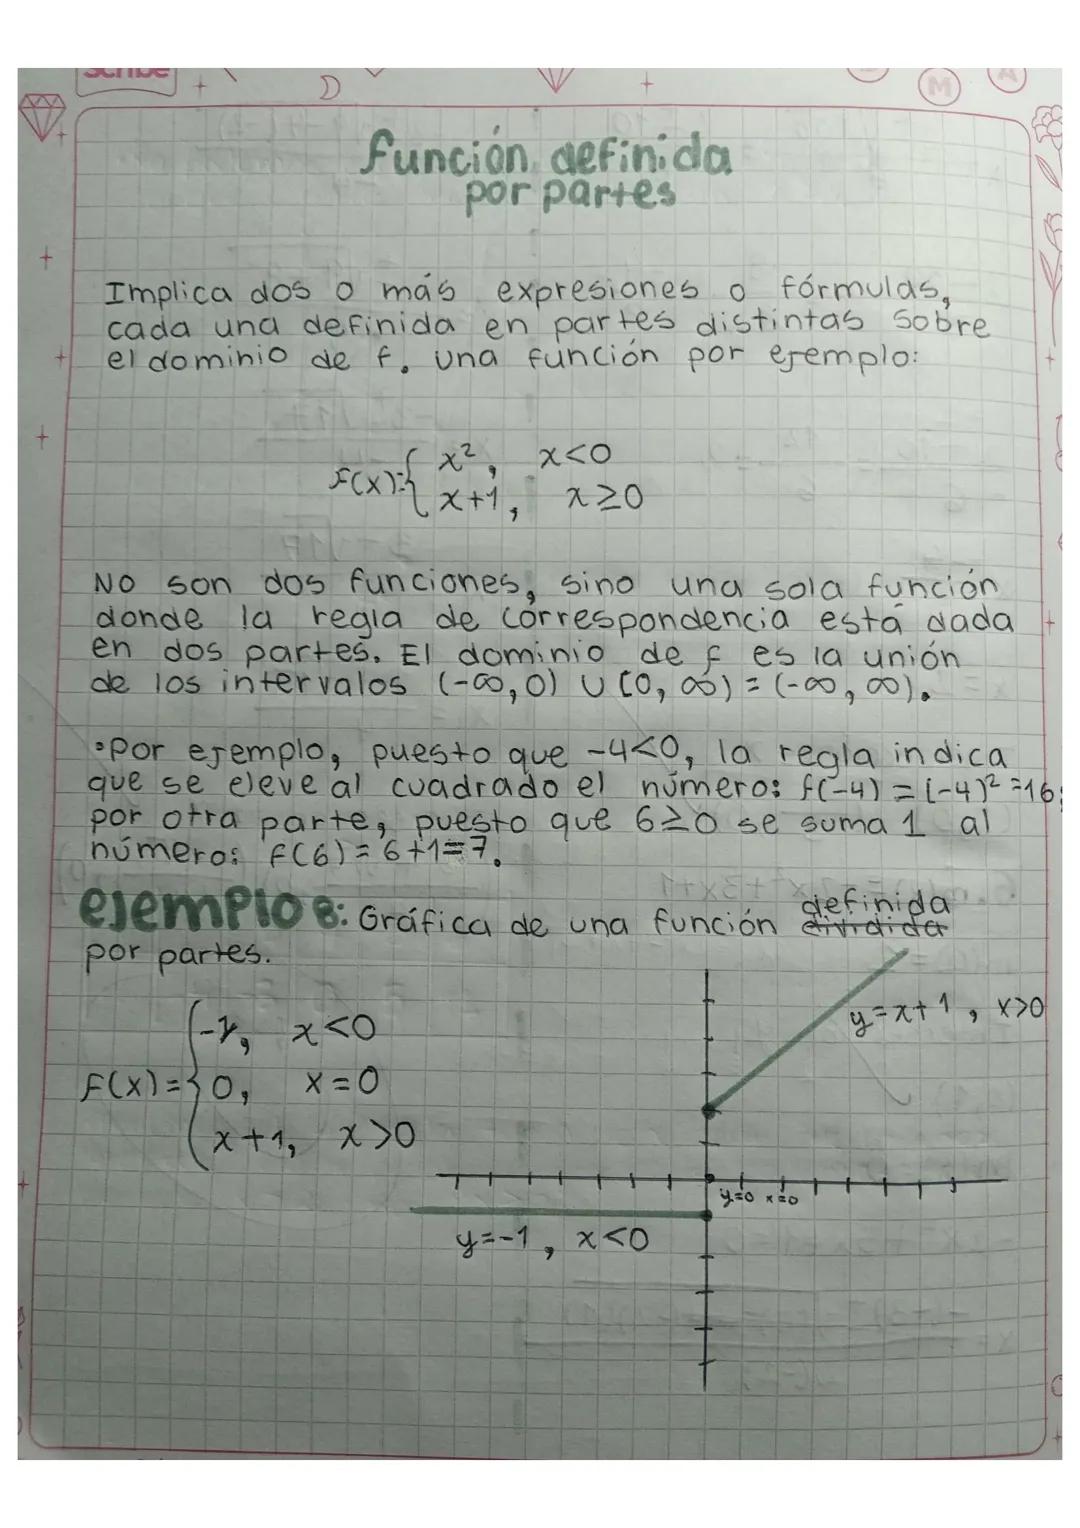 Scribe
M
A
función definida
por partes
Implica dos o más expresiones o fórmulas,
cada una definida en partes distintas sobre
el dominio de f. una función por ejemplo:
f(x)={ x², x<0
x+1, x≥0
No son dos funciones, sino una sola función
donde la regla de correspondencia está dada
en dos partes. El dominio de f es la unión
de los intervalos (-∞,0) ∪ [0, ∞) = (-∞, ∞).
•Por ejemplo, puesto que -4<0, la regla indica
que se eleve al cuadrado el número: f(-4) = (-4)² =16;
por otra parte, puesto que 6≥0 se suma 1 al
número: f(6)=6+1=7.
ejemplo 8: Gráfica de una función dividida definida
por partes.
-1, x<0
f(x)={ 0, x=0
x+1, x>0
y=x+1, x>0
y=0 x=0
y=-1, x<0